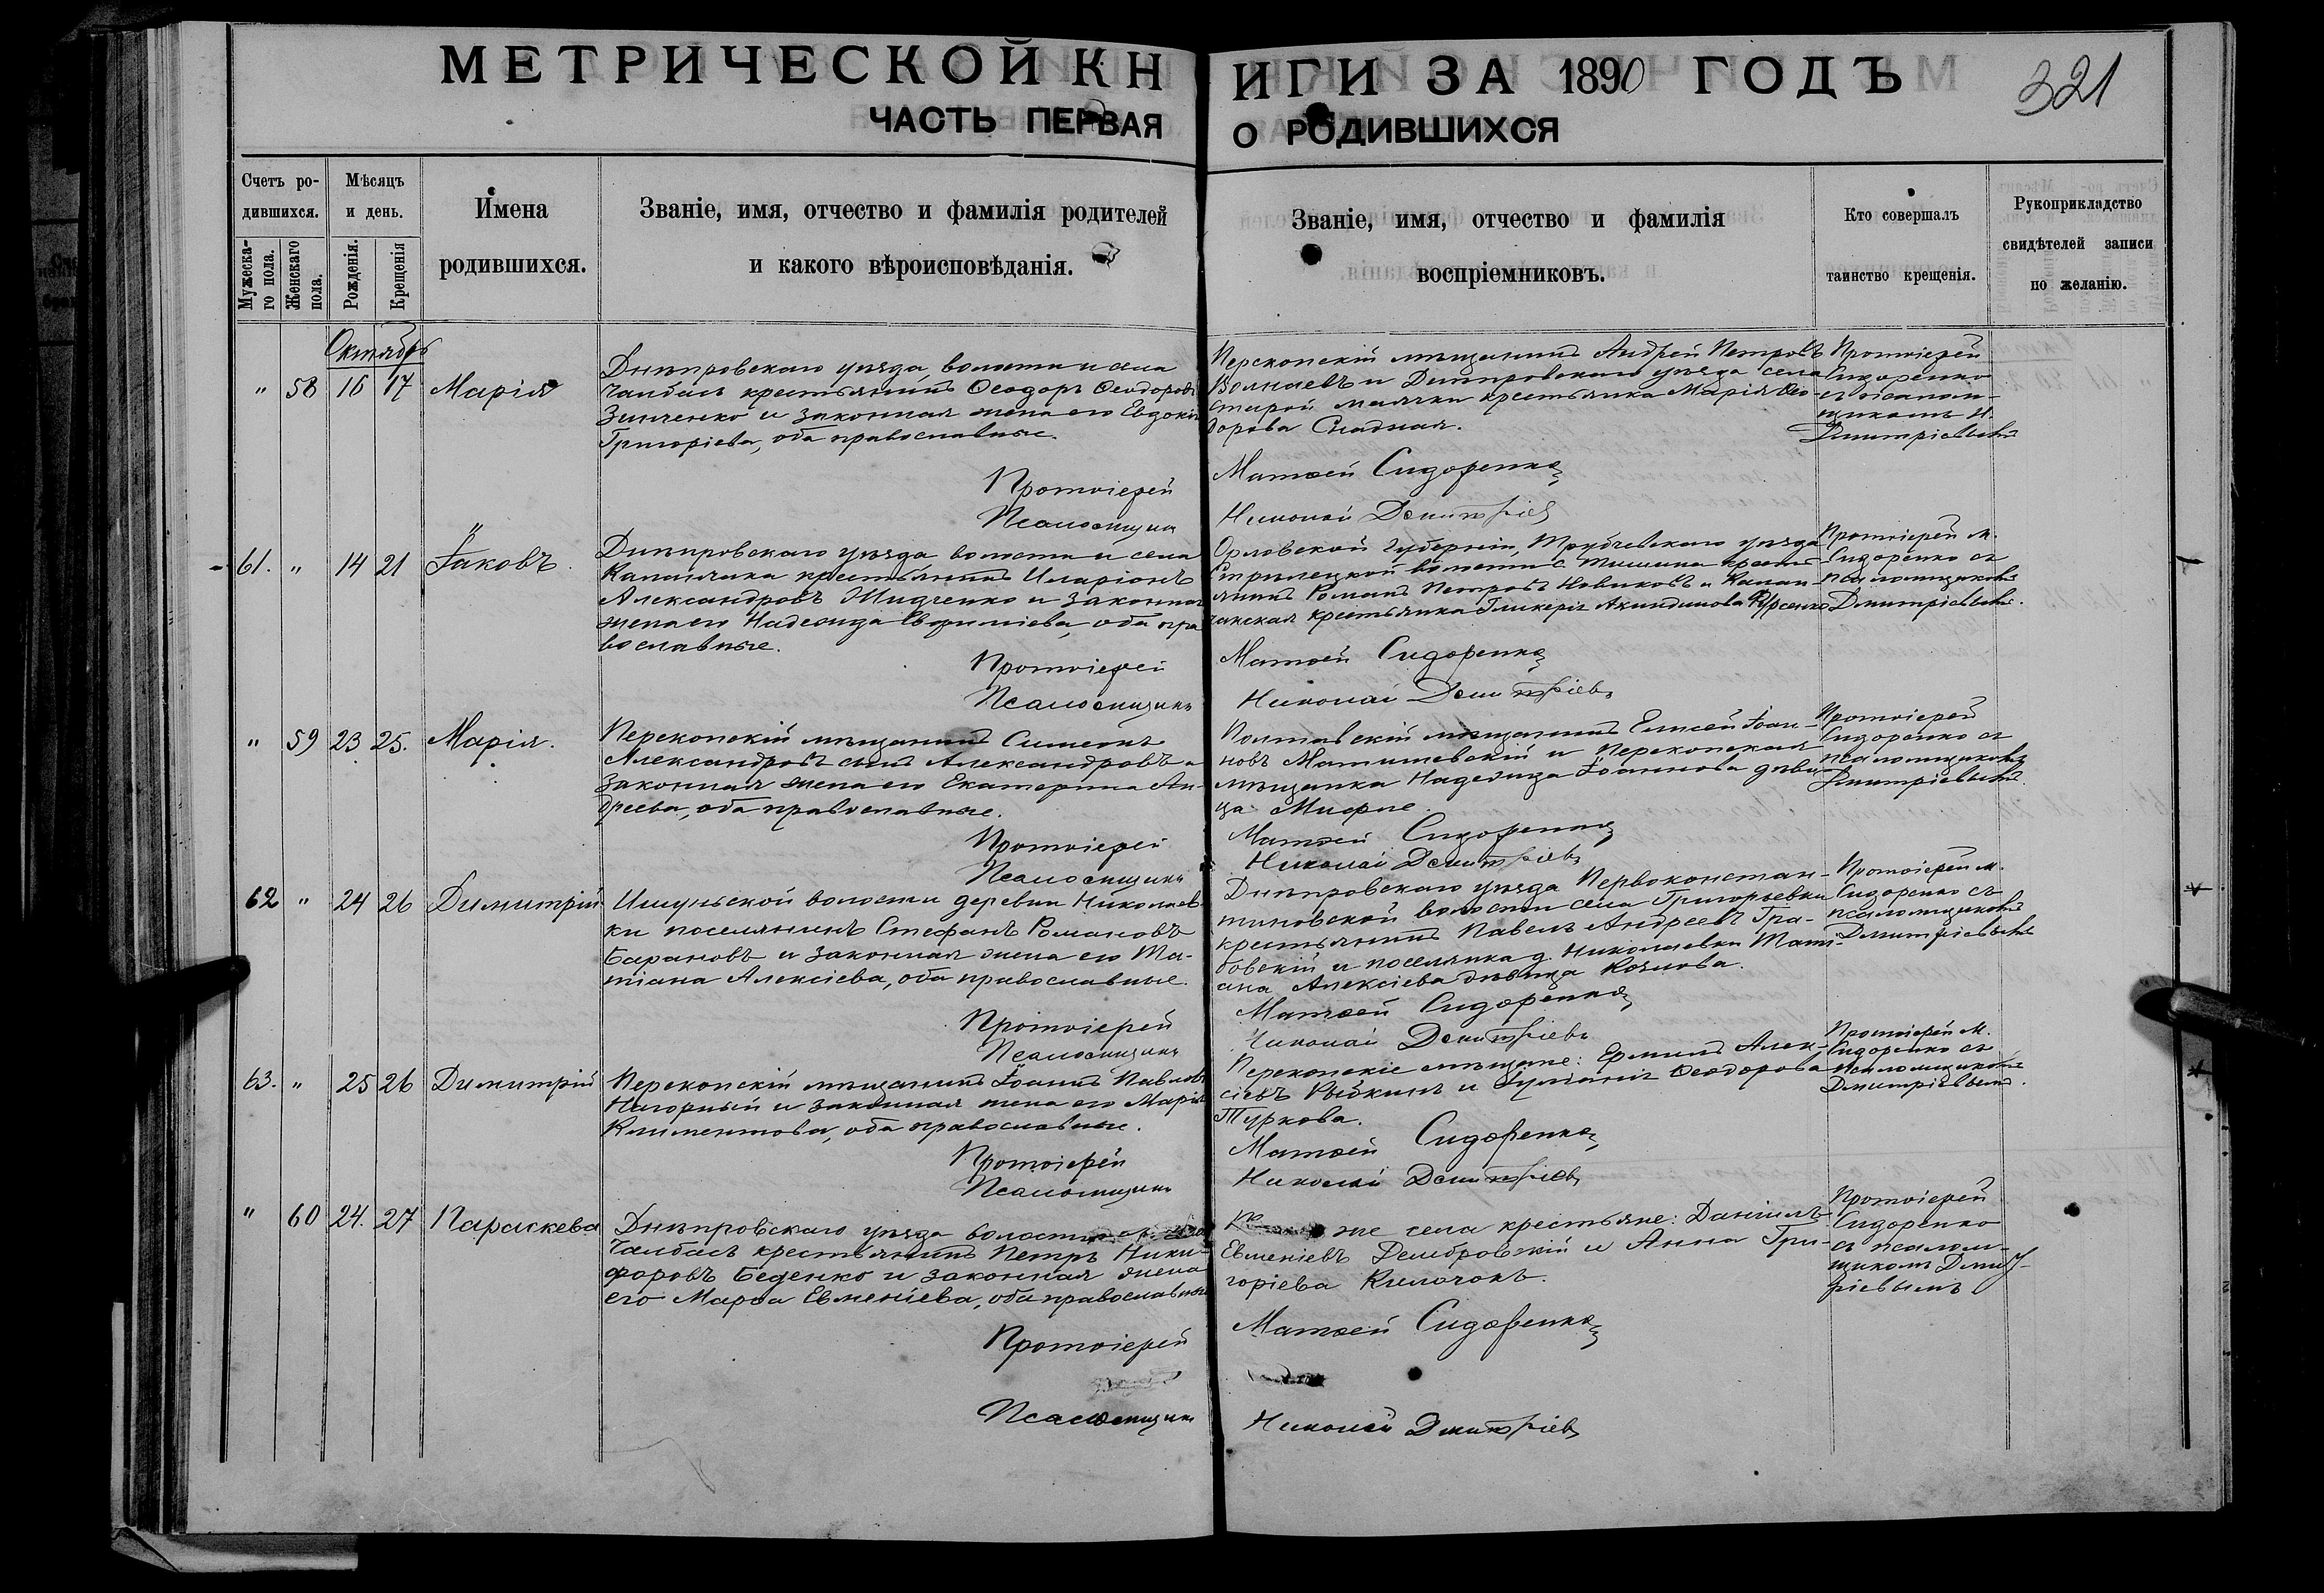 МЕТРИЧЕСКОЙ КНИГИ ЗА 1890 ГОДЪ
321
ЧАСТЬ ПЕРВАЯ О РОДИВШИХСЯ
Счетъ ро-
дившихся.
Мужеска-
го пола.
Женскаго
пола.
Мѣсяцъ
и день.
Рожденія.
Крещенія
Имена
родившихся.
Званіе, имя, отчество и фамилія родителей
и какого вѣроисповѣданія.
Званіе, имя, отчество и фамилія
воспріемниковъ.
Кто совершалъ
таинство крещенія.
Рукоприкладство
свидѣтелей записи
по желанію.
Октябрь
" 58 16 17 Марія
Днѣпровскаго уѣзда, волости и села
Чалбасъ крестьянинъ Ѳеодоръ Ѳеодоровъ
Зинченко и законная жена его Евдокія
Григоріева, оба православные.
Перекопскій мѣщанинъ Андрей Петровъ
и Днѣпровскаго уѣзда села
Старой Маячки крестьянка Марія Ѳео-
дорова
Протоіерей
Сидоренко
съ псалом-
щикомъ Н.
Дмитріевымъ
Протоіерей Матѳей Сидоренко
Псаломщикъ Николай Дмитріевъ
61. " 14 21 Іаковъ.
Днѣпровскаго уѣзда волости и села
Каланчака крестьянинъ Иларіонъ
Александровъ Жидченко и законная
жена его Надежда Евфиміева, оба пра
вославные.
Орловской губерніи, Трубчевскаго уѣзда
волости с. кресть
янинъ Романъ Петровъ Новиковъ и Калан-
чакская крестьянка Гликерія Акиндинова
Протоіерей М.
Сидоренко съ
псаломщикомъ
Дмитріевымъ.
Протоіерей Матѳей Сидоренко
Псаломщикъ Николай Дмитріевъ
" 59 23 25. Марія.
Перекопскій мѣщанинъ Симеонъ
Александровъ сынъ Александровъ и
законная жена его Екатерина Ан-
дреева, оба православные.
Полтавскій мѣщанинъ Елисей Іоан-
новъ и Перекопская
мѣщанка Надежда Іоаннова дѣви-
ца
Протоіерей
Сидоренко съ
псаломщикомъ
Дмитріевымъ.
Протоіерей Матѳей Сидоренко
Псаломщикъ Николай Дмитріевъ
62 " 24 26 Димитрій
Ишуньской волости деревни Николаев-
ки поселянинъ Стефанъ Романовъ
Барановъ и законная жена его Та-
тіана Алексіева, оба православные.
Днѣпровскаго уѣзда Первоконстан-
тиновской волости села Григорьевки
крестьянинъ Павелъ Андреевъ Гра-
бовскій и поселянка д. Николаевки Тати-
ана Алексіева дѣвица Козлова.
Протоіерей М.
Сидоренко съ
псаломщикомъ
Дмитріевымъ
Протоіерей Матѳей Сидоренко
Псаломщикъ Николай Дмитріевъ
63. " 25 26 Димитрій
Перекопскій мѣщанинъ Іоаннъ Павловъ
Нагорный и законная жена его Марія
Климентова, оба православные.
Перекопскіе мѣщане: Ермилъ Алек-
сіевъ Рыбкинъ и Іуліанія Ѳеодорова
Туркова.
Протоіерей М.
Сидоренко съ
псаломщикомъ
Дмитріевымъ.
Протоіерей Матѳей Сидоренко
Псаломщикъ Николай Дмитріевъ
" 60 24. 27 Параскева
Днѣпровскаго уѣзда волости
Чалбасъ крестьянинъ Петръ Ники-
форовъ Беденко и законная жена
его Марѳа Евменіева, оба православные
же села крестьяне: Даніилъ
Евменіевъ Домбровскій и Анна Гри-
горіева
Протоіерей
Сидоренко
съ псалом-
щикомъ Дмит-
ріевымъ
Протоіерей Матѳей Сидоренко
Псаломщикъ Николай Дмитріевъ